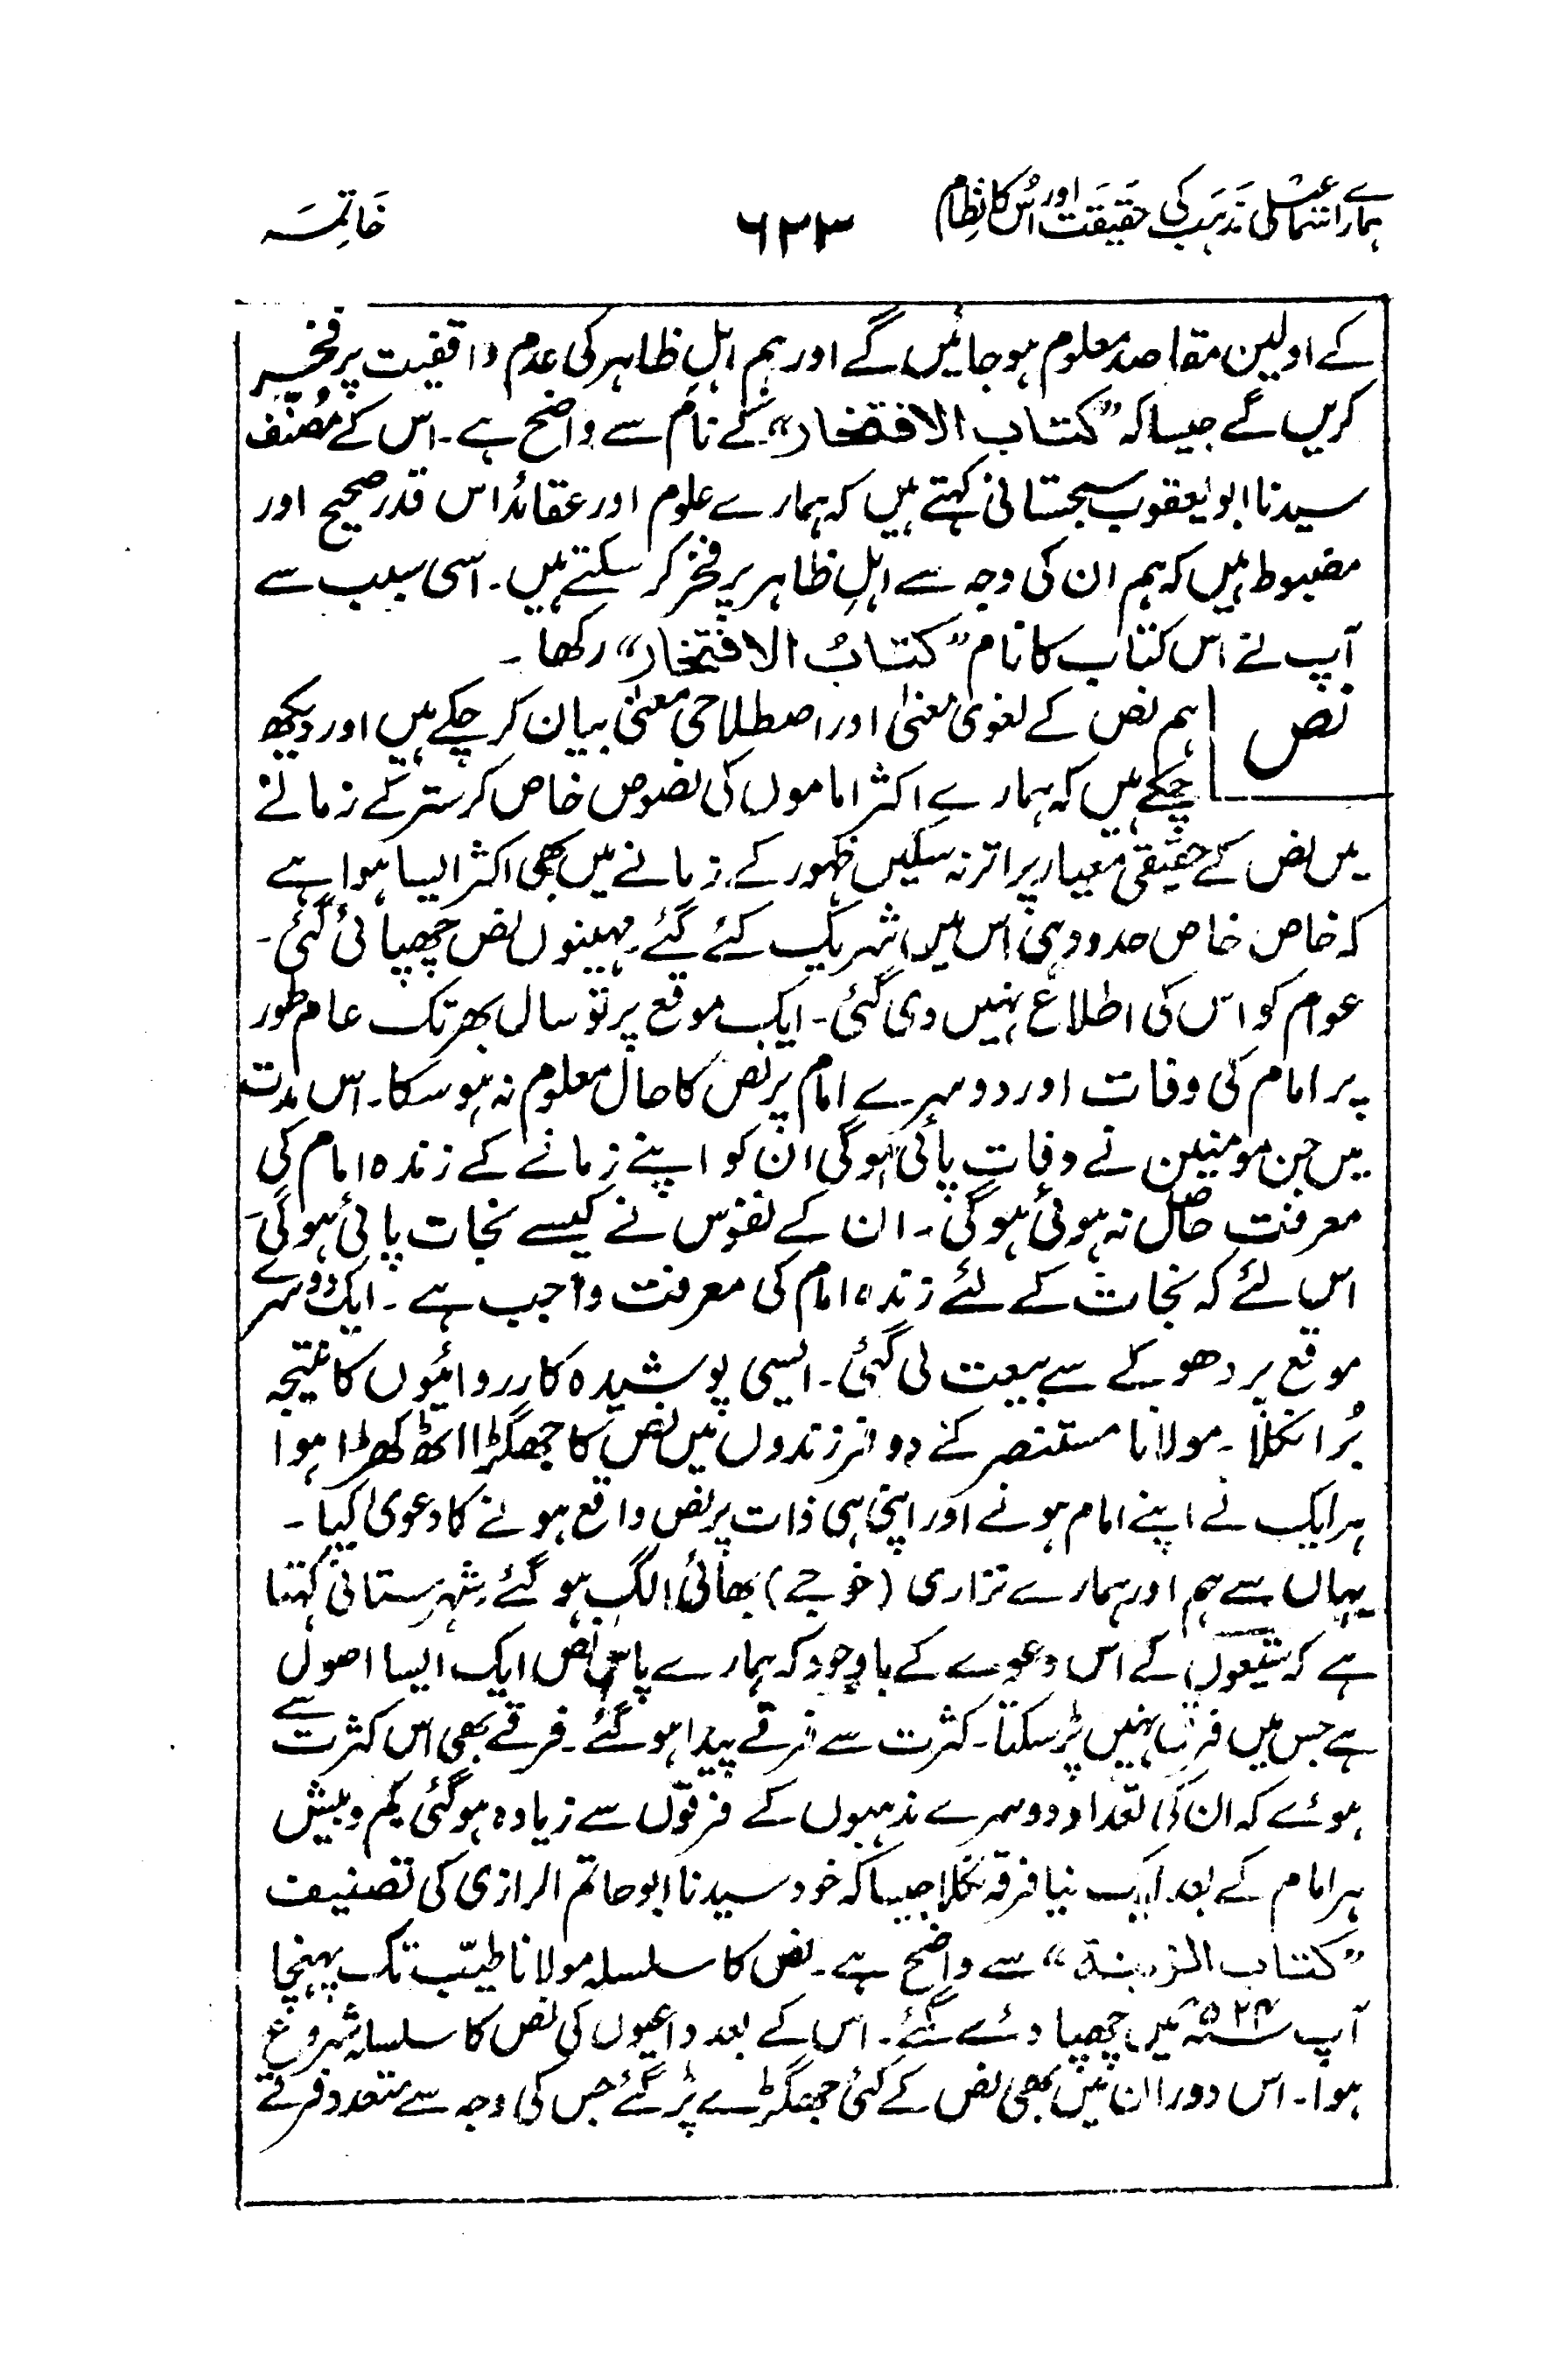 ہمارے اسمٰعیلی مذہب کی حقیقت اور اُس کا نظام ۶۲۳ خاتمہ
کے اولین مقاصد معلوم ہو جائیں گے اور ہم اہلِ ظاہر کی عدم واقفیت پر فخر
کریں گے جیسا کہ ”کتاب الافتخار“ کے نام سے واضح ہے۔ اس کے مُصنّف
سیدنا ابو یعقوب سجستانی کہتے ہیں کہ ہمارے علوم اور عقائد اس قدر صحیح اور
مضبوط ہیں کہ ہم ان کی وجہ سے اہلِ ظاہر پر فخر کر سکتے ہیں۔ اسی سبب سے
آپ نے اس کتاب کا نام ”کتابُ الافتخار“ رکھا۔
نص ہم نص کے لغوی معنیٰ اور اصطلاحی معنیٰ بیان کر چکے ہیں اور دیکھ
چکے ہیں کہ ہمارے اکثر اماموں کی نصوص خاص کر ستر کے زمانے
میں نص کے حقیقی معیار پر اتر نہ سکیں ظہور کے زمانے میں بھی اکثر ایسا ہوا ہے
کہ خاص خاص حدود ہی اس میں شریک کئے گئے۔ مہینوں نص چھپائی گئی۔
عوام کو اس کی اطلاع نہیں دی گئی۔ ایک موقع پر تو سال بھر تک عام طور
پر امام کی وفات اور دوسرے امام پر نص کا حال معلوم نہ ہو سکا۔ اس مدت
میں جن مومنین نے وفات پائی ہوگی ان کو اپنے زمانے کے زندہ امام کی
معرفت حاصل نہ ہوئی ہوگی۔ ان کے نفوس نے کیسے نجات پائی ہوگی۔
اس لئے کہ نجات کے لئے زندہ امام کی معرفت واجب ہے۔ ایک دوسرے
موقع پر دھوکے سے بیعت لی گئی۔ ایسی پوشیدہ کارروائیوں کا نتیجہ
بُرا نکلا۔ مولانا مستنصر کے دو فرزندوں میں نص کا جھگڑا اٹھ کھڑا ہوا
ہر ایک نے اپنے امام ہونے اور اپنی ہی ذات پر نص واقع ہونے کا دعویٰ کیا۔
یہاں سے ہم اور ہمارے نزاری (خوجے) بھائی الگ ہو گئے۔ شہرستانی کہتا
ہے کہ شیعوں کے اس دعوے کے باوجود کہ ہمارے پاس نص ایک ایسا اصول
ہے جس میں فرق نہیں پڑ سکتا۔ کثرت سے فرقے پیدا ہو گئے۔ فرقے بھی اس کثرت سے
ہوئے کہ ان کی تعداد دوسرے مذہبوں کے فرقوں سے زیادہ ہو گئی کم و بیش
ہر امام کے بعد ایک نیا فرقہ نکلا جیسا کہ خود سیدنا ابو حاتم الرازی کی تصنیف
”کتاب الزینۃ“ سے واضح ہے۔ نص کا سلسلہ مولانا طیّب تک پہنچا
آپ ۵۲۴ھ میں چھپا دئے گئے۔ اس کے بعد داعیوں کی نص کا سلسلہ شروع
ہوا۔ اس دوران میں بھی نص کے کئی جھگڑے پڑ گئے جس کی وجہ سے متعدد فرقے